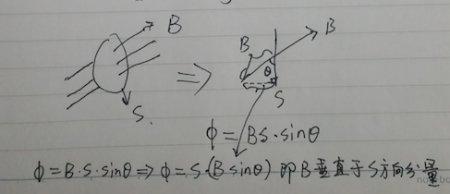 B
S.
⇒
B
B
θ
S
ϕ = BS·sinθ
ϕ = B·S·sinθ ⇒ ϕ = S·(B sinθ) 即B垂直于S方向分量